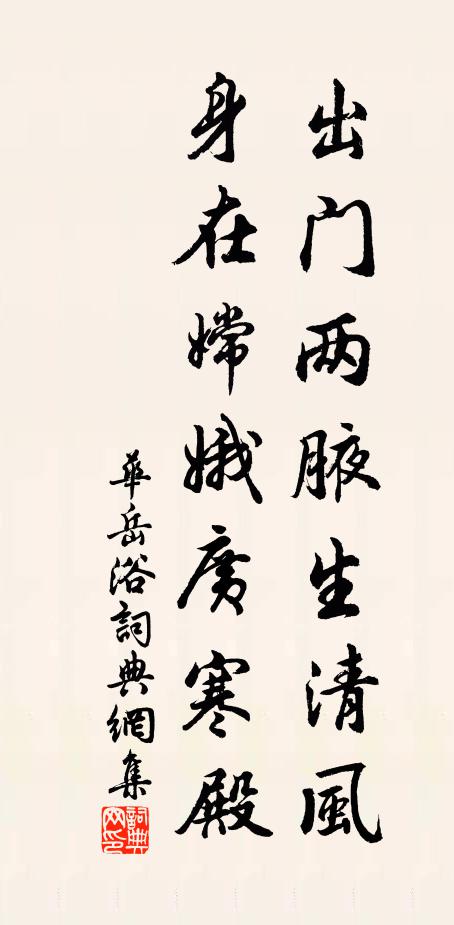 出门两腋生清風
身在嫦娥廣寒殿
華岳浴詞典網集
詞典网印